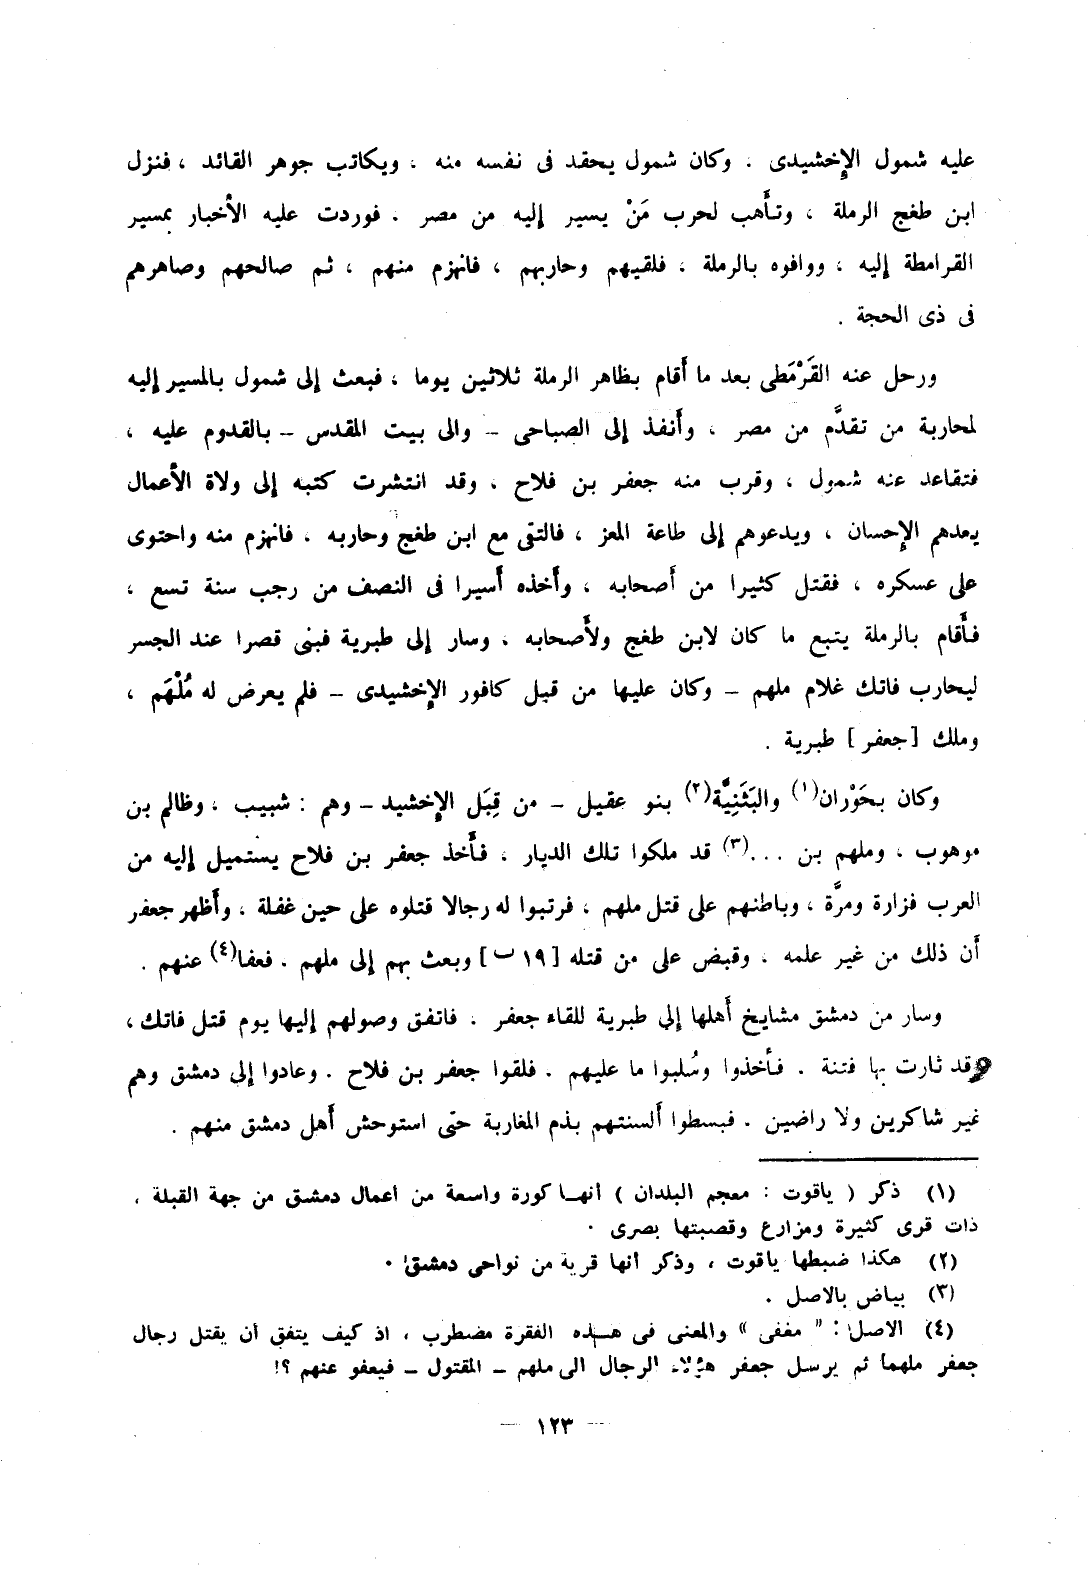 عليه شمول الإخشيدى . وكان شمول يحقد فى نفسه منه ، ويكاتب جوهر القائد ، فنزل
ابن طغج الرملة ، وتأهب لحرب مَنْ يسير إليه من مصر . فوردت عليه الأخبار بمسير
القرامطة إليه ، ووافوه بالرملة ، فلقيهم وحاربهم ، فانهزم منهم ، ثم صالحهم وصاهرهم
فى ذى الحجة .
ورحل عنه القَرْمَطى بعد ما أقام بظاهر الرملة ثلاثين يوما ، فبعث إلى شمول بالمسير إليه
لمحاربة من تقدَّم من مصر ، وأنفذ إلى الصباحى – والى بيت المقدس – بالقدوم عليه ،
فتقاعد عنه شمول ، وقرب منه جعفر بن فلاح ، وقد انتشرت كتبه إلى ولاة الأعمال
يعدهم الإحسان ، ويدعوهم إلى طاعة المعز ، فالتقى مع ابن طغج وحاربه . فانهزم منه واحتوى
على عسكره ، فقتل كثيرا من أصحابه ، وأخذه أسيرا فى النصف من رجب سنة تسع ،
فأقام بالرملة يتبع ما كان لابن طغج ولأصحابه ، وسار إلى طبرية فبنى قصرا عند الجسر
ليحارب فاتك غلام ملهم – وكان عليها من قبل كافور الإخشيدى – فلم يعرض له مُلْهَم ،
وملك [جعفر] طبرية .
وكان بحَوْران(١) والبَثَنِيَّة(٢) بنو عقيل – من قِبَل الإخشيد – وهم : شبيب ، وظالم بن
موهوب ، وملهم بن ...(٣) قد ملكوا تلك الديار ، فأخذ جعفر بن فلاح يستميل إليه من
العرب فزارة ومرَّة ، وباطنهم على قتل ملهم ، فرتبوا له رجالا قتلوه على حين غفلة ، وأظهر جعفر
أن ذلك من غير علمه ، وقبض على من قتله [١٩ ب] وبعث بهم إلى ملهم . فعفا(٤) عنهم .
وسار من دمشق مشايخ أهلها إلى طبرية للقاء جعفر . فاتفق وصولهم إليها يوم قتل فاتك ،
وقد ثارت بها فتنة . فأخذوا وسُلبوا ما عليهم . فلقوا جعفر بن فلاح . وعادوا إلى دمشق وهم
غير شاكرين ولا راضين . فبسطوا ألسنتهم بذم المغاربة حتى استوحش أهل دمشق منهم .
(١) ذكر ( ياقوت : معجم البلدان ) انها كورة واسعة من اعمال دمشق من جهة القبلة ،
ذات قرى كثيرة ومزارع وقصبتها بصرى .
(٢) هكذا ضبطها ياقوت ، وذكر انها قرية من نواحى دمشق .
(٣) بياض بالاصل .
(٤) الاصل : " مغفى " والمعنى فى هذه الفقرة مضطرب ، اذ كيف يتفق ان يقتل رجال
جعفر ملهما ثم يرسل جعفر هؤلاء الرجال الى ملهم – المقتول – فيعفو عنهم ؟!
— ١٢٣ —